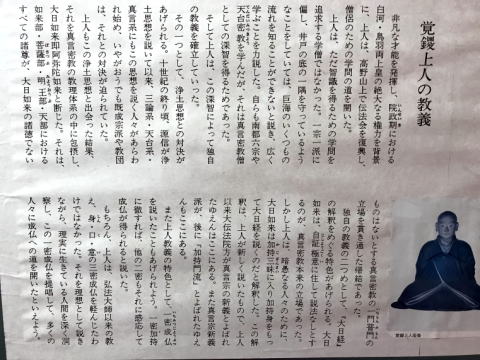 覚鑁上人の教義
非凡な才能を発揮し、院政期における
白河・鳥羽両上皇の絶大なる権力を背景
に、上人は、高野山上で伝法会を復興し、
僧侶のための学問の道を開いた。
上人は、ただ智識を得るための学問を
追求する学僧ではなかった。一宗一派に
偏し、井戸の底の一隅を守っているよう
なことをしていては、巨海のいくつもの
流れを知ることができないと説き、広く
学ぶことを力説した。自らも南都六宗や
天台密教を学んだが、それは真言密教僧
としての深智を得るためであった。
そして上人は、この深智によって独自
の教義を確立していった。
その一つとして、浄土思想との対決が
あげられる。十世紀の終り頃、源信が浄
土思想を説いて以来、三論系・天台系・
真言系にもこの思想を説く人々があらわ
れ始め、いやがおうでも既成宗派や教団
は、それとの対決が迫られていた。
上人もこの浄土思想と出会った結果、
それを真言密教の教理体系の中に包摂し、
大日如来即阿弥陀如来と断じた。それは、
如来部・菩薩部・明王部・天部における
すべての諸尊が、大日如来の諸徳でない
ものはないとする真言密教の「一門普門」の
立場を貫き通した帰結であった。
独自の教義の二つめとして、『大日経』
の解釈をめぐる特色があげられる。大日
如来は、自証極意に住して説法なしとす
るのが、真言密教本来の立場であった。
しかし上人は、暗愚なる人々のために、
大日如来は加持三昧に入り加持身をもっ
て大日経を説くのだと解釈した。この解
釈は、上人が新しく説いたもので、上人
以来大伝法院方が真言宗の新義とよばれ
たゆえんはここにある。また真言宗新義
派が、後に「加持門流」とよばれたゆえ
んもここにある。
また上人教義の特色として、一密成仏
を説いたこともあげられよう。一密加持
に徹すれば、他の二密もそれに感応して
成仏が得られると説いた。
もちろん、上人は、弘法大師以来の教
え、身・口・意の三密成仏を軽んじたわ
けではなかった。それを理想として説き
ながら、現実に生きている人間を深く洞
察し、この一密成仏を提唱して、多くの
人々に成仏への道を開いたといえよう。
覚鑁上人画像